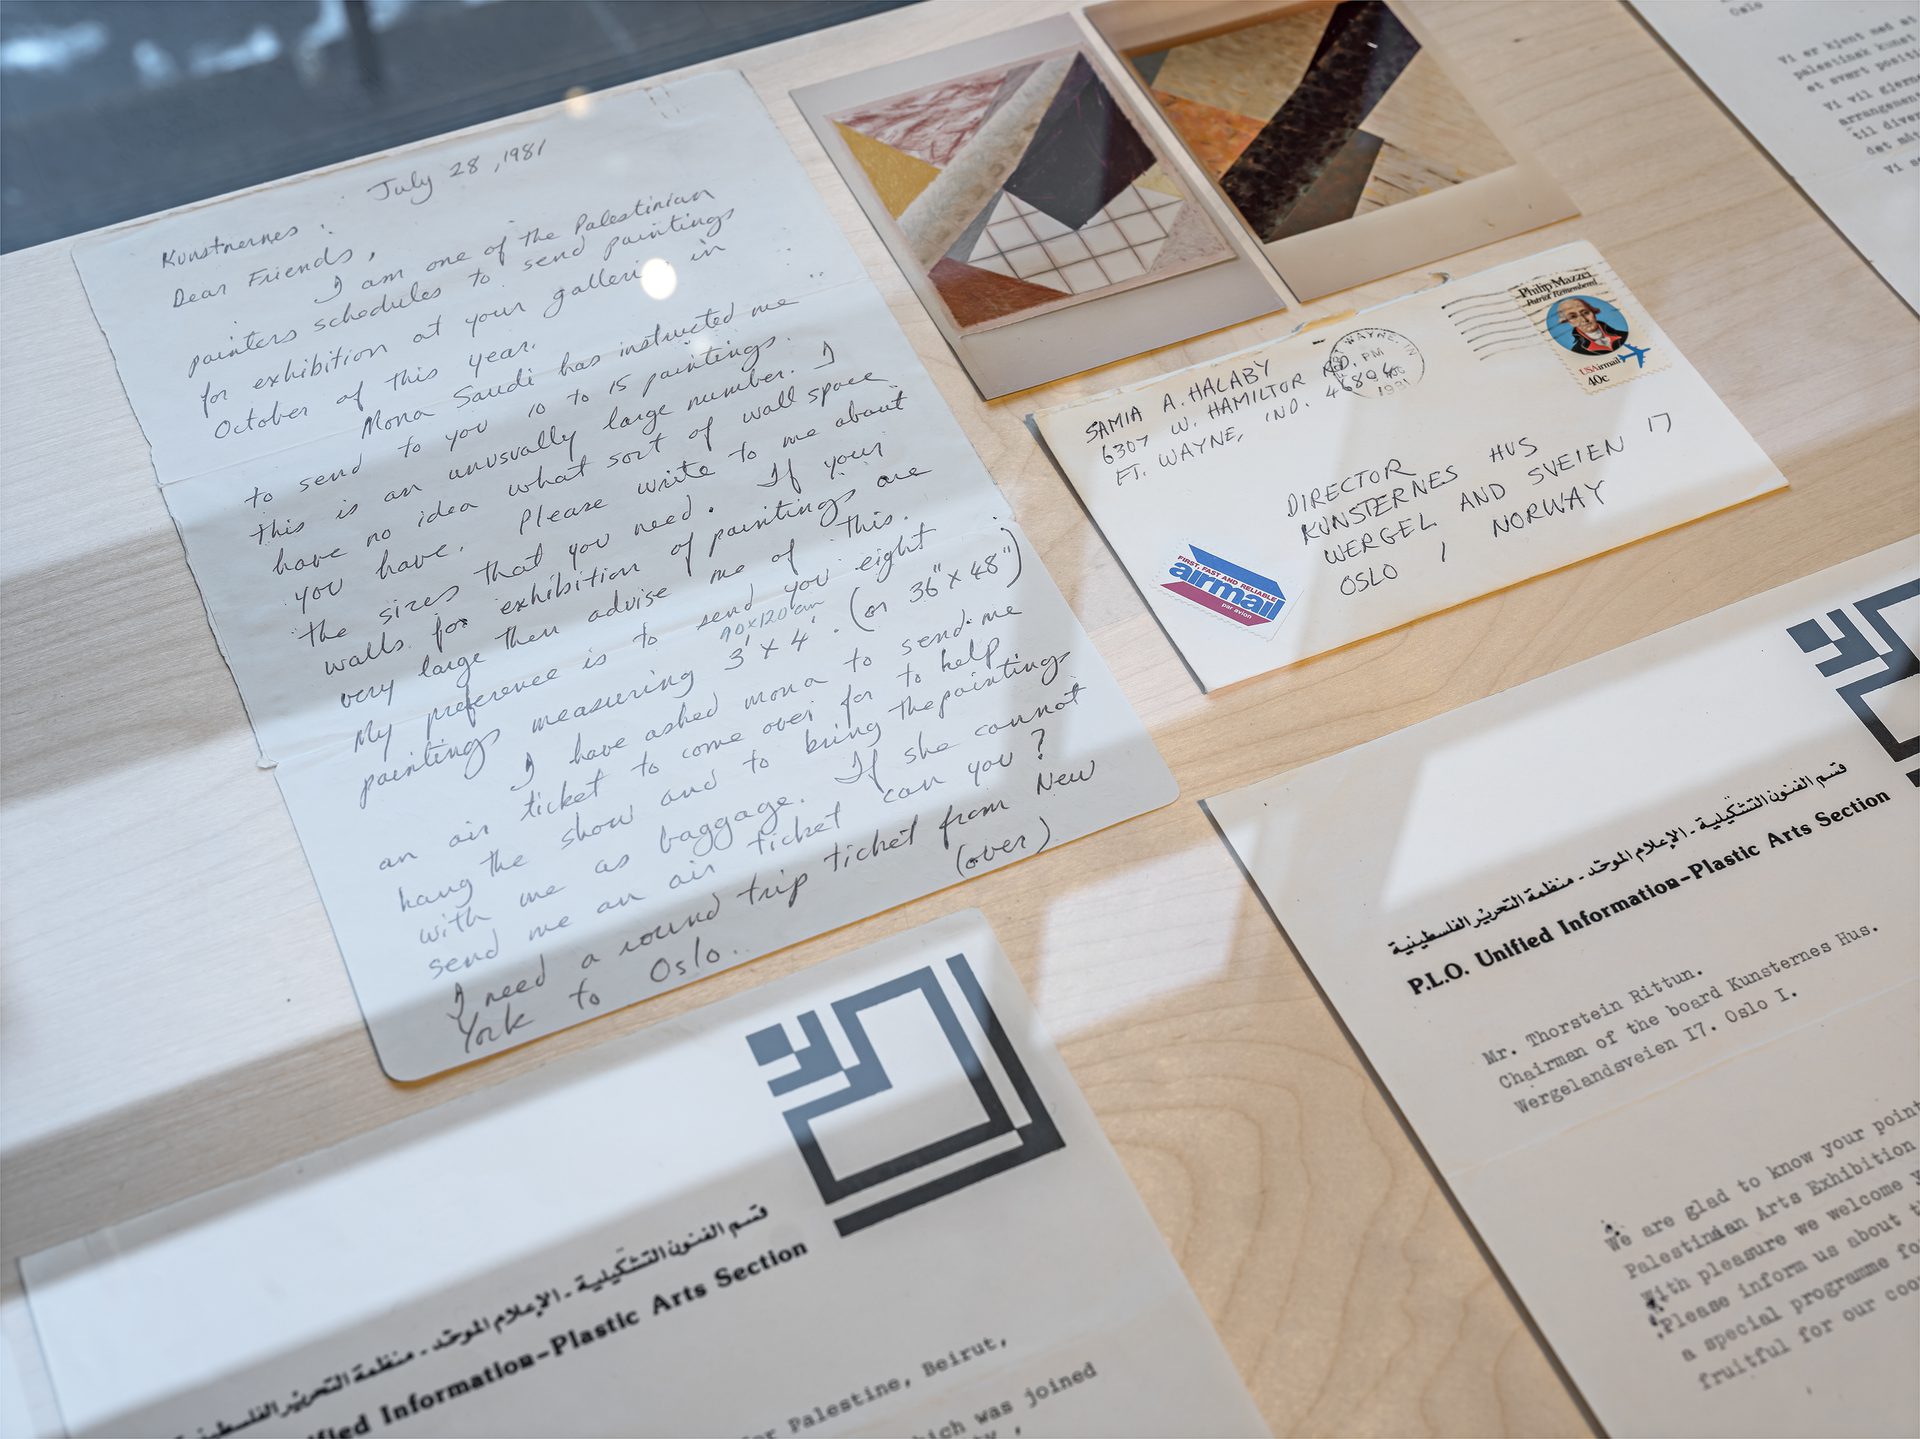 July 28, 1981
Kunstnernes :
Dear Friends,
I am one of the Palestinian
painters schedules to send paintings
for exhibition at your galleries in
October of this year.
Mona Saudi has instructed me
to send to you 10 to 15 paintings.
this is an unusually large number. I
have no idea what sort of wall space
you have. Please write to me about
the sizes that you need. If your
walls for exhibition of paintings are
very large then advise me of this.
My preference is to send you eight
90x120 cm
paintings measuring 3' x 4'. (or 36" x 48")
I have asked mona to send me
an air ticket to come over for to help
hang the show and to bring the paintings
with me as baggage. If she cannot
send me an air ticket can you?
I need a round trip ticket from New
York to Oslo.
(over)
SAMIA A. HALABY
6307 W. HAMILTON RD.
FT. WAYNE, IND. 46804
WAYNE, IN
PM
1981
Philip Mazzei
Patriot Remembered
USAirmail
40c
DIRECTOR
KUNSTERNES HUS
WERGEL AND SVEIEN 17
OSLO 1 NORWAY
FIRST, FAST AND RELIABLE
airmail
par avion
Oslo
Vi er kjent med at
palestinsk kunst
et svært positi
Vi vil gjerne
arrangement
til diver
det må
Vi
قسم الفنون التشكيلية - الإعلام الموحّد - منظمة التحرير الفلسطينية
P.L.O. Unified Information-Plastic Arts Section
Mr. Thorstein Rittun.
Chairman of the board Kunsternes Hus.
Wergelandsveien I7. Oslo I.
We are glad to know your point
Palestinian Arts Exhibition
With pleasure we welcome y
Please inform us about t
a special programme fo
fruitful for our coo
قسم الفنون التشكيلية - الإعلام الموحّد - منظمة التحرير الفلسطينية
ified Information-Plastic Arts Section
or Palestine, Beirut,
hich was joined